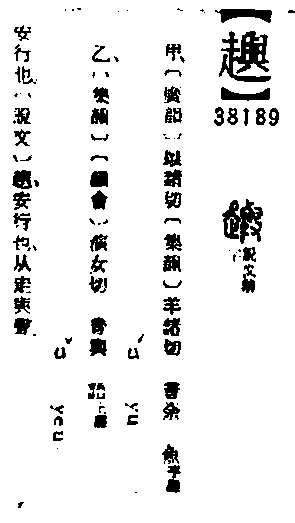 【𧾚】
38189
說文篆
甲、〔廣韻〕以諸切〔集韻〕羊諸切 音余 魚平聲
ㄩˊ yu
乙、〔集韻〕〔韻會〕演女切 音與 語上聲
ㄩˇ yeu
安行也、〔說文〕𧾚、安行也、从走與聲